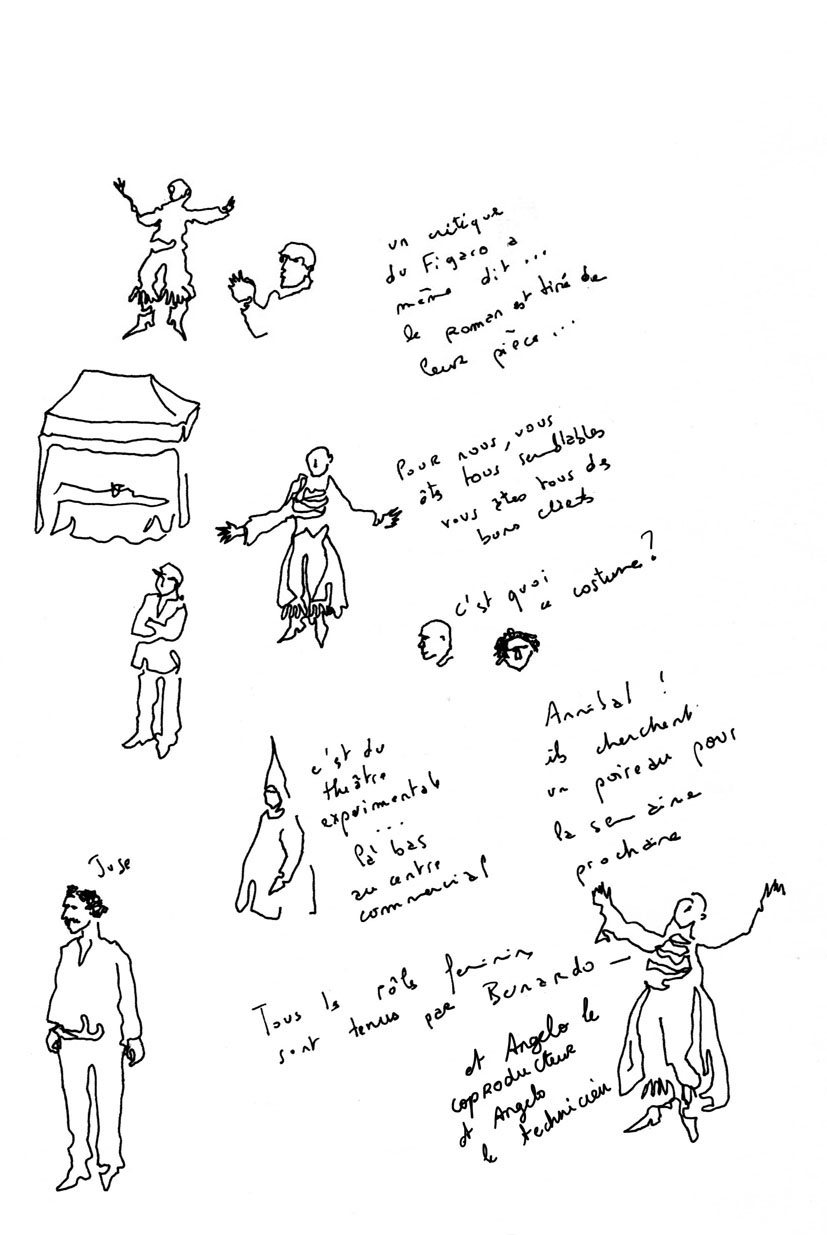 un critique
du Figaro a
même dit...
le roman est tiré de
leur pièce...
Pour nous, vous
êts tous semblables
vous êtes tous de
bons clients
c'est quoi
ce costume?
Annibal!
ils cherchent
un poireau pour
la semaine
prochaine
c'est du
théâtre
expérimental
...
là bas
au centre
commercial
Juse
Tous ls rôls féminins
sont tenus par Bernardo —
et Angelo le
coproducteur
et Angelo
le technicien